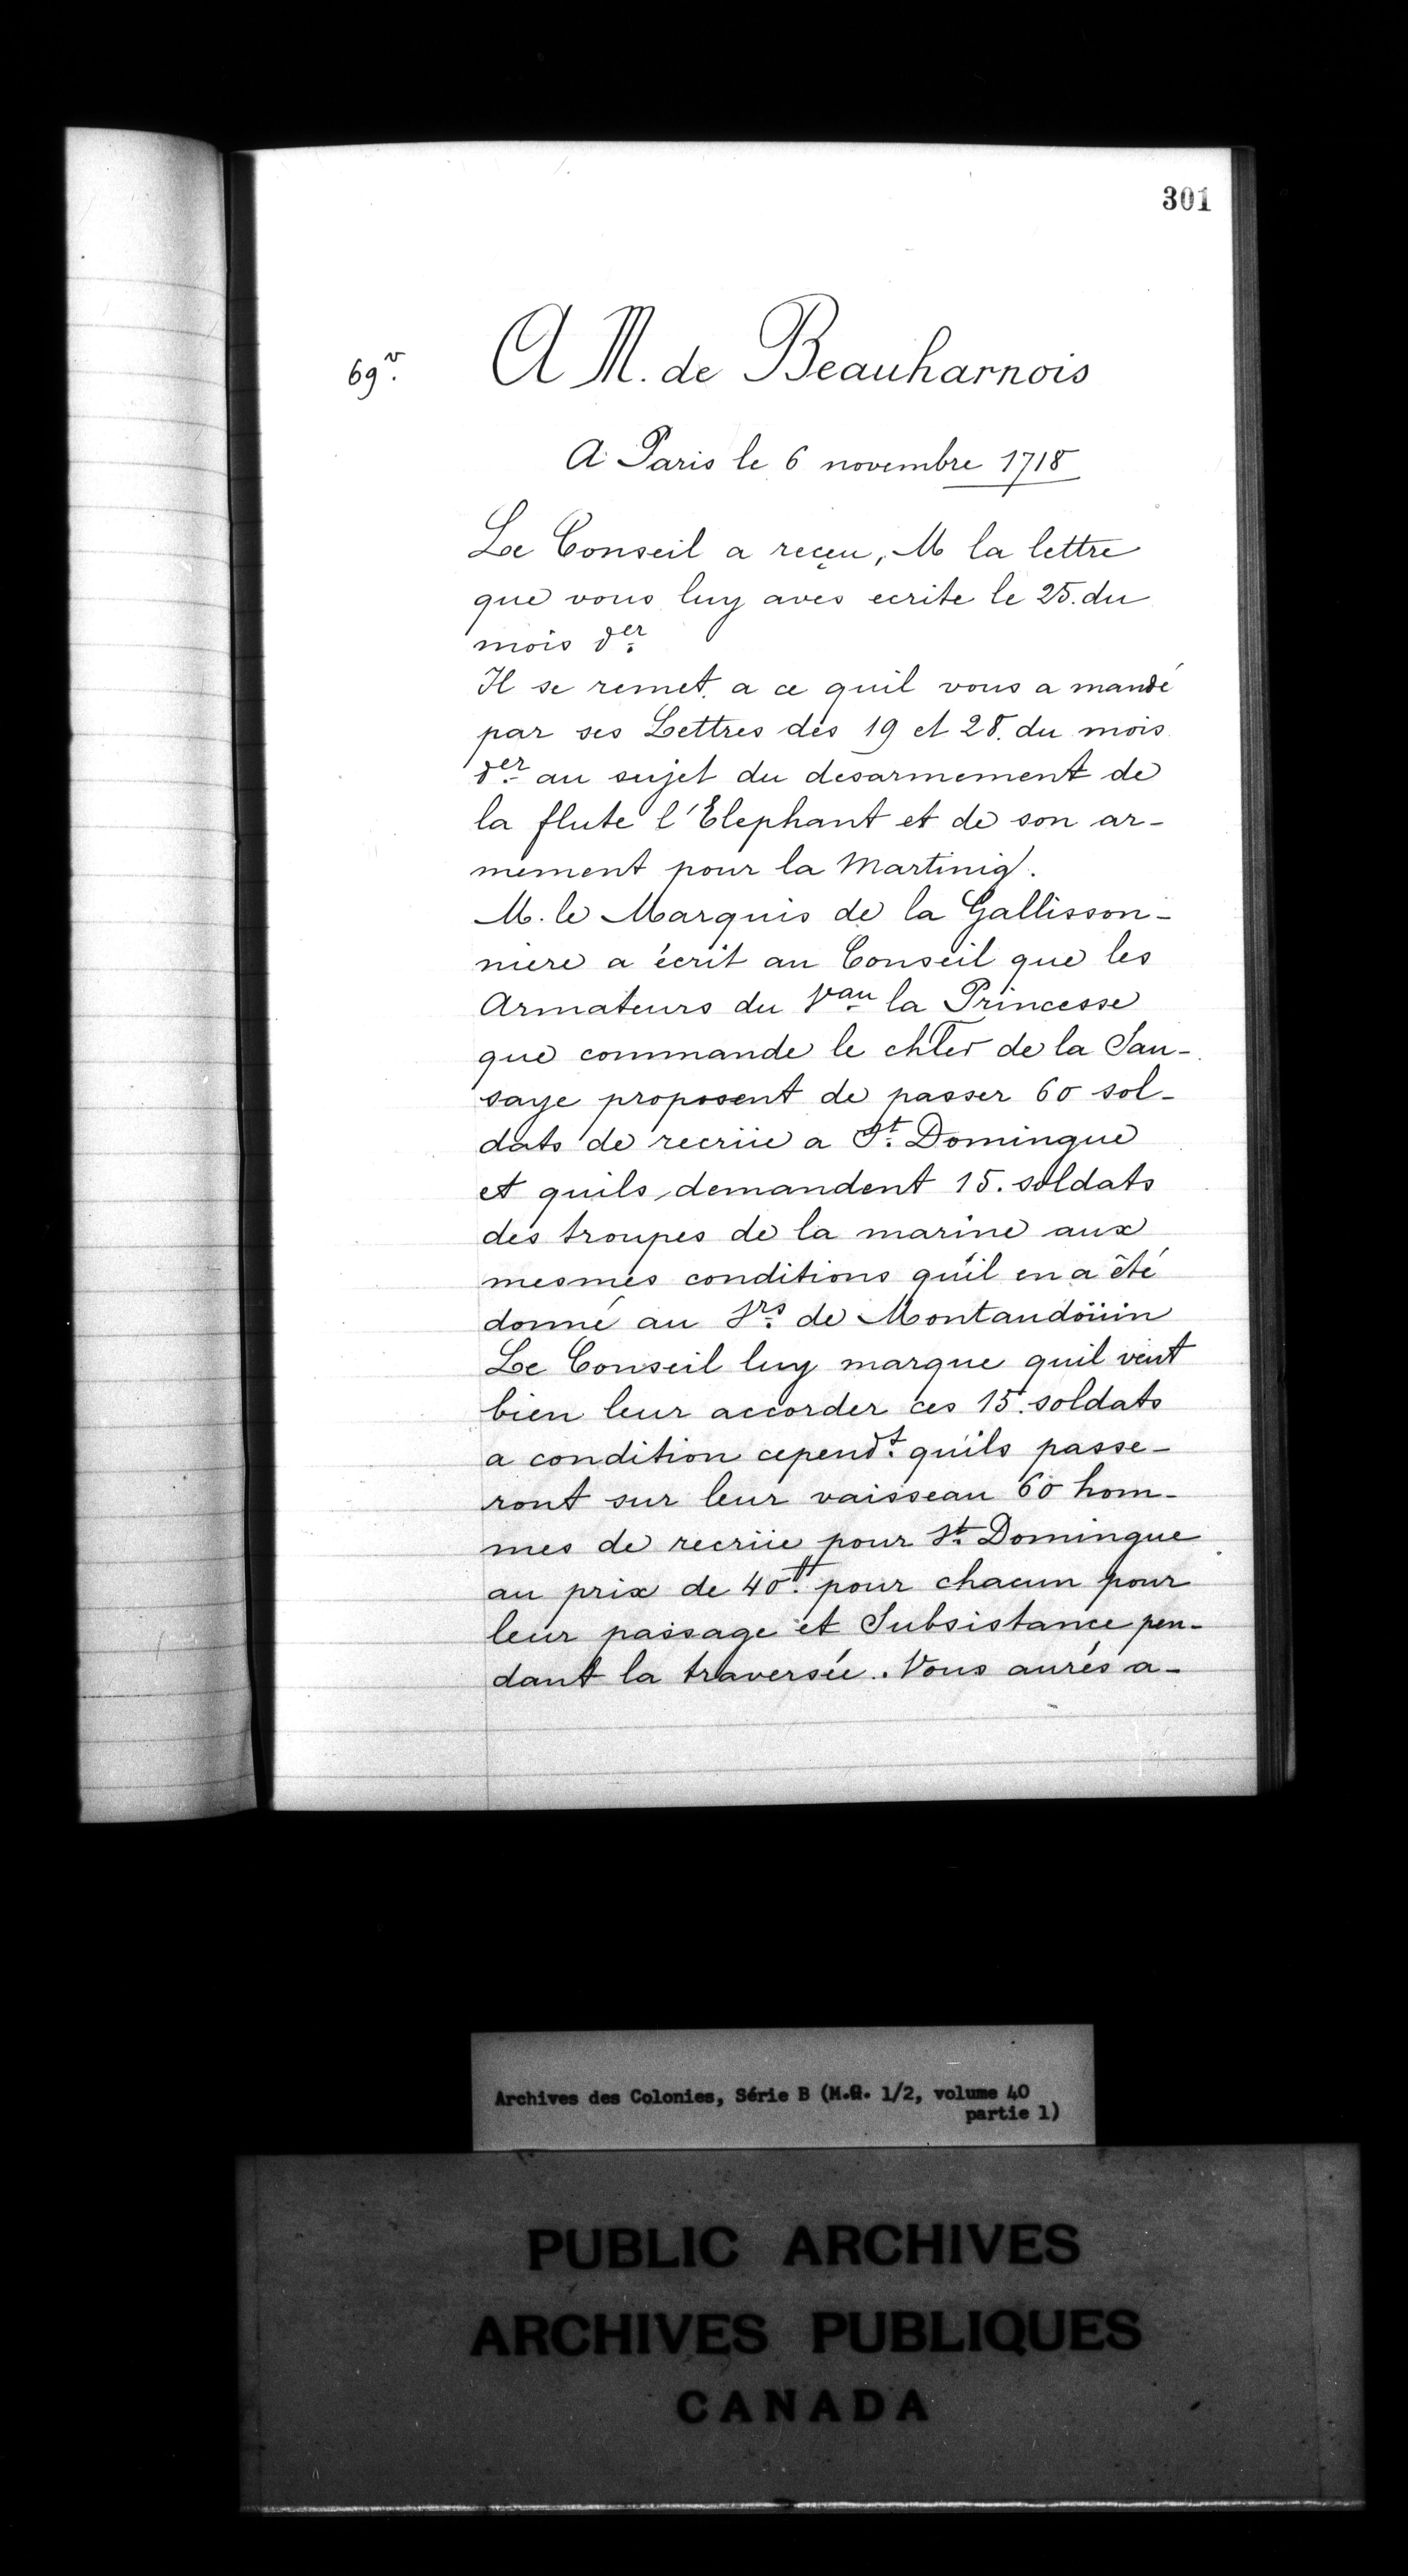 301
69v.
A M. de Beauharnois
A Paris le 6 novembre 1718
Le Conseil a reçeu, M la lettre
que vous luy avés ecrite le 25. du
mois der
Il se remet a ce quil vous a mandé
par ses Lettres des 19 et 28. du mois
der au sujet du desarmement de
la flute l'Elephant et de son ar-
mement pour la Martiniq.
M. le Marquis de la Gallisson-
niere a écrit au Conseil que les
Armateurs du Vau la Princesse
que commande le chler de la Sau-
saye proposent de passer 60 sol-
dats de recrüe a St. Domingue
et quils demandent 15. soldats
des troupes de la marine aux
mesmes conditions qu'il en a été
donné au Srs de Montaudoüin
Le Conseil luy marque quil veut
bien leur accorder ces 15. soldats
a condition cependt. qu'ils passe-
ront sur leur vaisseau 60 hom-
mes de recrüe pour St. Domingue
au prix de 40tt. pour chacun pour
leur passage et Subsistance pen-
dant la traversée. Vous aurés a-
Archives des Colonies, Série B (M.G. 1/2, volume 40
partie 1)
PUBLIC ARCHIVES
ARCHIVES PUBLIQUES
CANADA